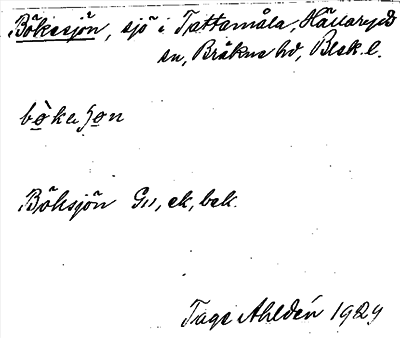 Bökesjön, sjö i Tattamåla, Hällaryds
sn, Bräkne hd, Blek. l.
bö̀keʃon
Böksjön G11, ek, bek.
Tage Ahldén 1929